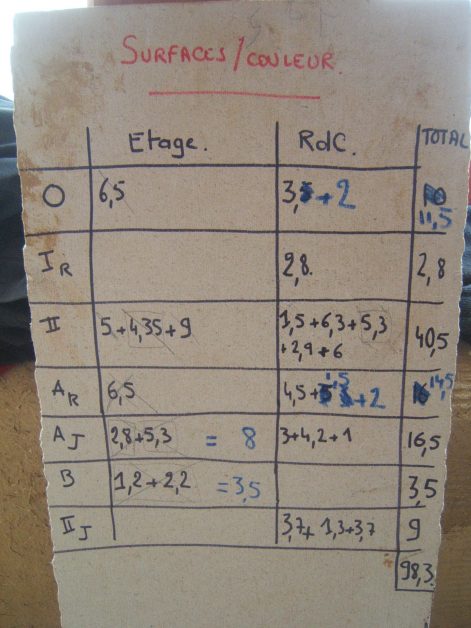 SURFACES/COULEUR.
Etage. RdC. TOTAL
O 6,5 3,5+2 11,5
I R 2,8. 2,8
II 5+4,35+9 1,5+6,3+5,3 40,5
+2,9+6
A R 6,5 4,5+1,5+2 14,5
A J 2,8+5,3 = 8 3+4,2+1 16,5
B 1,2+2,2 =3,5 3,5
II J 3,7+1,3+3,7 9
98,3